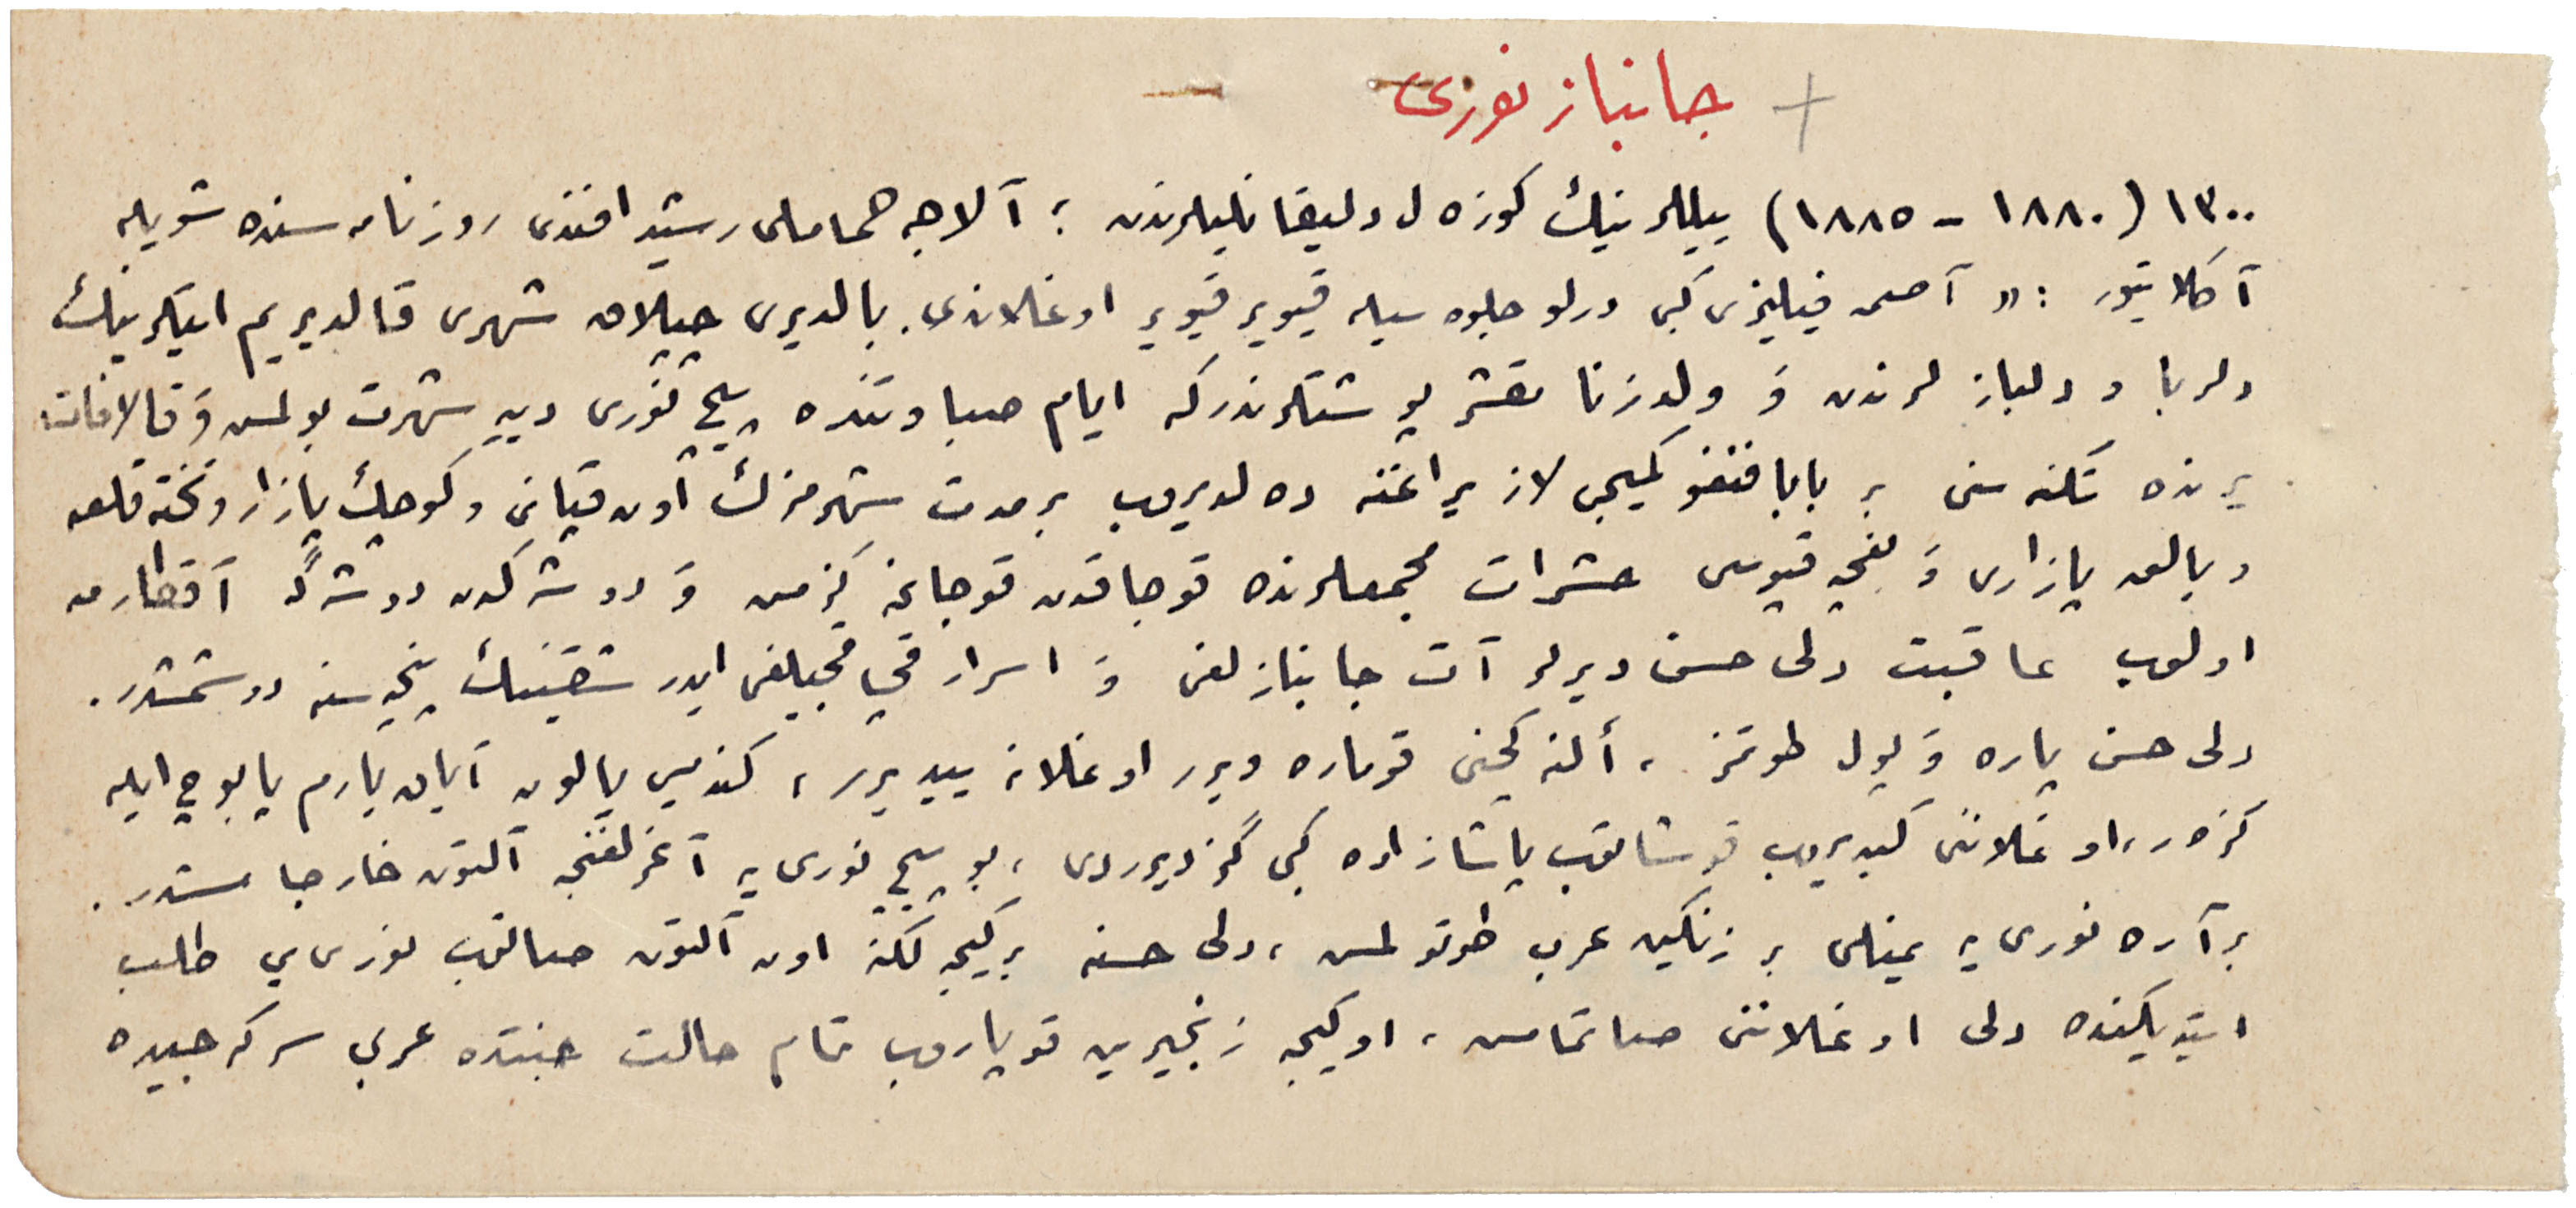 جانباز نوری
۱۳۰۰ (۱۸۸۰ - ۱۸۸۵) ییللرینك كوزه ل دلیقانلیلرندن ؛ آلاجه حماملی رشید افندی روزنامه سنده شویله
آكلاتیور : « آصمه فیلیزی كبی درلو جلوه سیله قیویر قیویر اوغلاندی. بالدیری چیلاق شهری قالدیریم ایتلرینك
دلربا و دلباز لرندن وَ ولدزنا مقشر پوشتلرندر كه ایام صباوتنده پیچ نوری دییه شهرت بولمس وَ قالافات
یرنده تكنه سنی بر بابا فتفو كمیجی لاز یراغنه ده لدیروب بر مدت شهرمزك اون قپانی و كوچك پازار و تخته قلعه
و بالق پازاری وَ بغچه قپوسی حشرات مجمعلرنده قوجاقدن قوجاغه كزمس وَ دوشكدن دوشگه آقطارمه
اولوب عاقبت دلی حسن دیرلر آت جانبازلغی وَ اسرار قچاقجیلغی ایدر شقینك پنچه سنه دوشمشدر .
دلی حسن پاره وَ پول طوتمز ، ألنه كچنی قوماره ویرر اوغلانه ییدیرر ، كندیسی یالون آیاق یارم پابوج ایله
كزه ر ، اوغلاننی كیدیروب قوشاتوب پاشازاده كبی گزدیرردی ، بو پیچ نوری یه آغزلغنجه آلتون خارجامشدر .
بر آره نوری یه یمنلی بر زنكین عرب طوتولمس ، دلی حسنه بر كیجه لكنه اون آلتون صالوب نوری یی طلب
ایتدیكنده دلی اوغلاننی صاتمامس ، او كیجه زنجیرین قوپاروب تمام حالت جنتده عربی سركه جیده